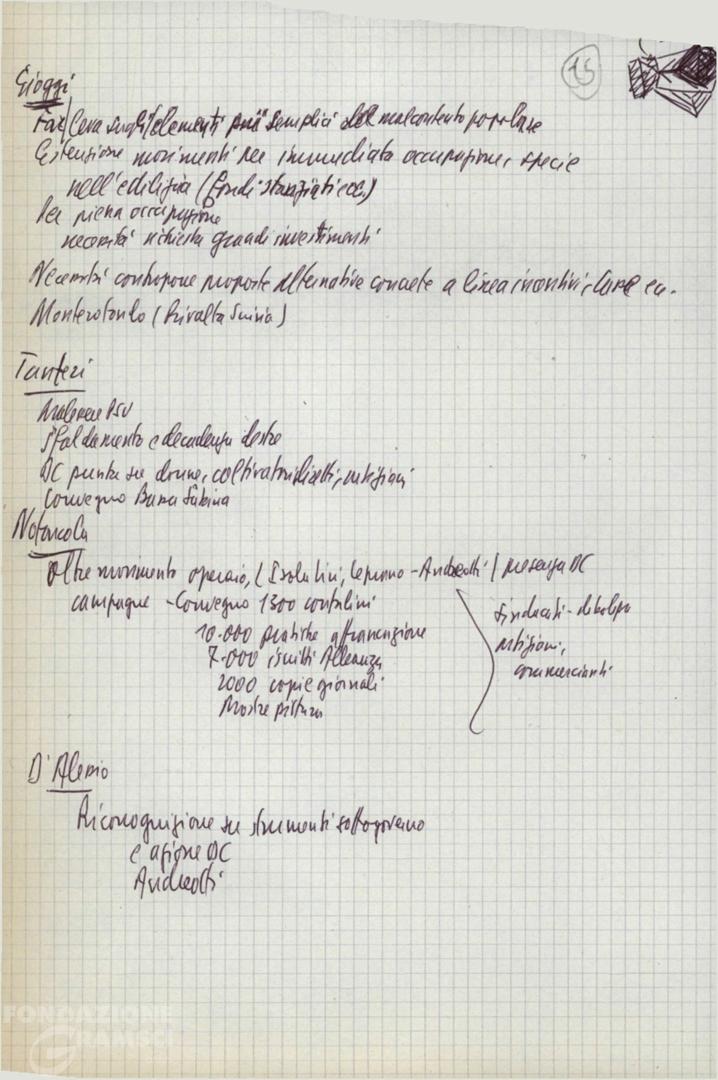 15
Gioggi
Far leva sugli elementi più semplici del malcontento popolare
Estensione movimenti per immediata occupazione, specie
nell'edilizia (fondi stanziati ecc.)
Per piena occupazione
necessità richiesta grandi investimenti
Necessità contrapporre proposte alternative concrete a linea incentivi,
Monterotondo (Rivalta Scrivia)
Tanteri
Malessere PSU
Sfaldamento e decadenza destre
DC punta su donne, coltivatori diretti, artigiani
Convegno Bassa Sabina
Notarcola
Oltre movimento operaio, (Isola Liri, Ceprano - Andreotti) presenza DC
campagne - Convegno 1300 contadini
10.000 pratiche affrancazione
7.000 iscritti Alleanza
2000 copie giornali
Mostre pittura
Sindacati - debolezza
artigiani,
commercianti
D'Alessio
Ricognizione su strumenti sottogoverno
e azione DC
Andreotti
FONDAZIONE
GRAMSCI